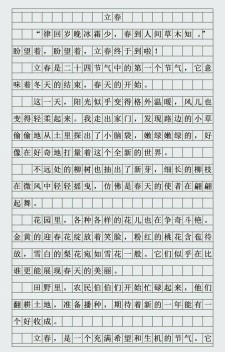 立春
“律回岁晚冰霜少，春到人间草木知。”
盼望着，盼望着，立春终于到啦！
立春是二十四节气中的第一个节气，它意
味着冬天的结束，春天的开始。
这一天，阳光似乎变得格外温暖，风儿也
变得轻柔起来。我走出家门，发现路边的小草
偷偷地从土里探出了小脑袋，嫩绿嫩绿的，好
像在好奇地打量着这个全新的世界。
不远处的柳树也抽出了新芽，细长的柳枝
在微风中轻轻摇曳，仿佛是春天的使者在翩翩
起舞。
花园里，各种各样的花儿也在争奇斗艳。
金黄的迎春花绽放着笑脸，粉红的桃花含苞待
放，雪白的梨花宛如雪花一般。它们似乎在比
谁更能展现春天的美丽。
田野里，农民伯伯们开始忙碌起来，他们
翻耕土地，准备播种，期待着新的一年能有一
个好收成。
立春，是一个充满希望和生机的节气，它